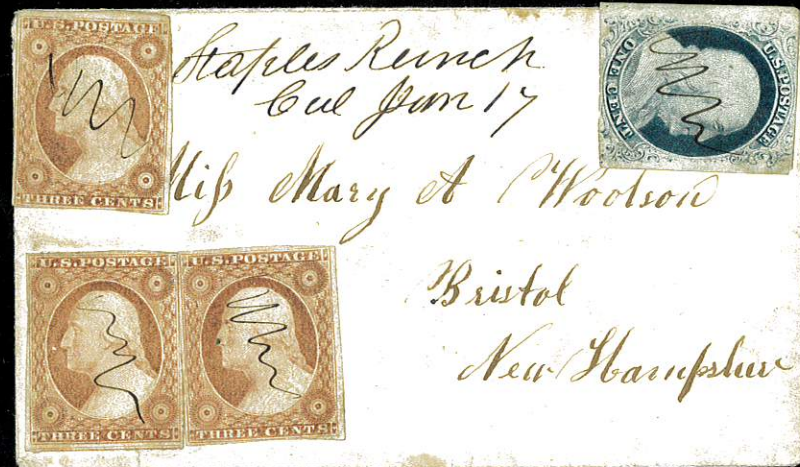 U.S. POSTAGE
THREE CENTS
Staples Rench
Cal Jan 17
U.S. POSTAGE
ONE CENT
Miss Mary A Woolson
Bristol
New Hampshire
U.S. POSTAGE
THREE CENTS
U.S. POSTAGE
THREE CENTS